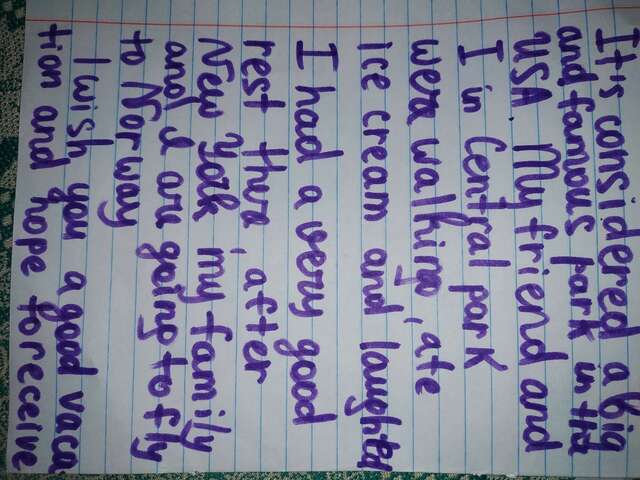 It's considered a big
and famous park in the
USA. My friend and
I in Central park
were walking, ate
ice cream and laughted
I had a very good
rest there, after
New York my family
and I are going to fly
to Norway
I wish you a good vaca
tion and hope to receeive